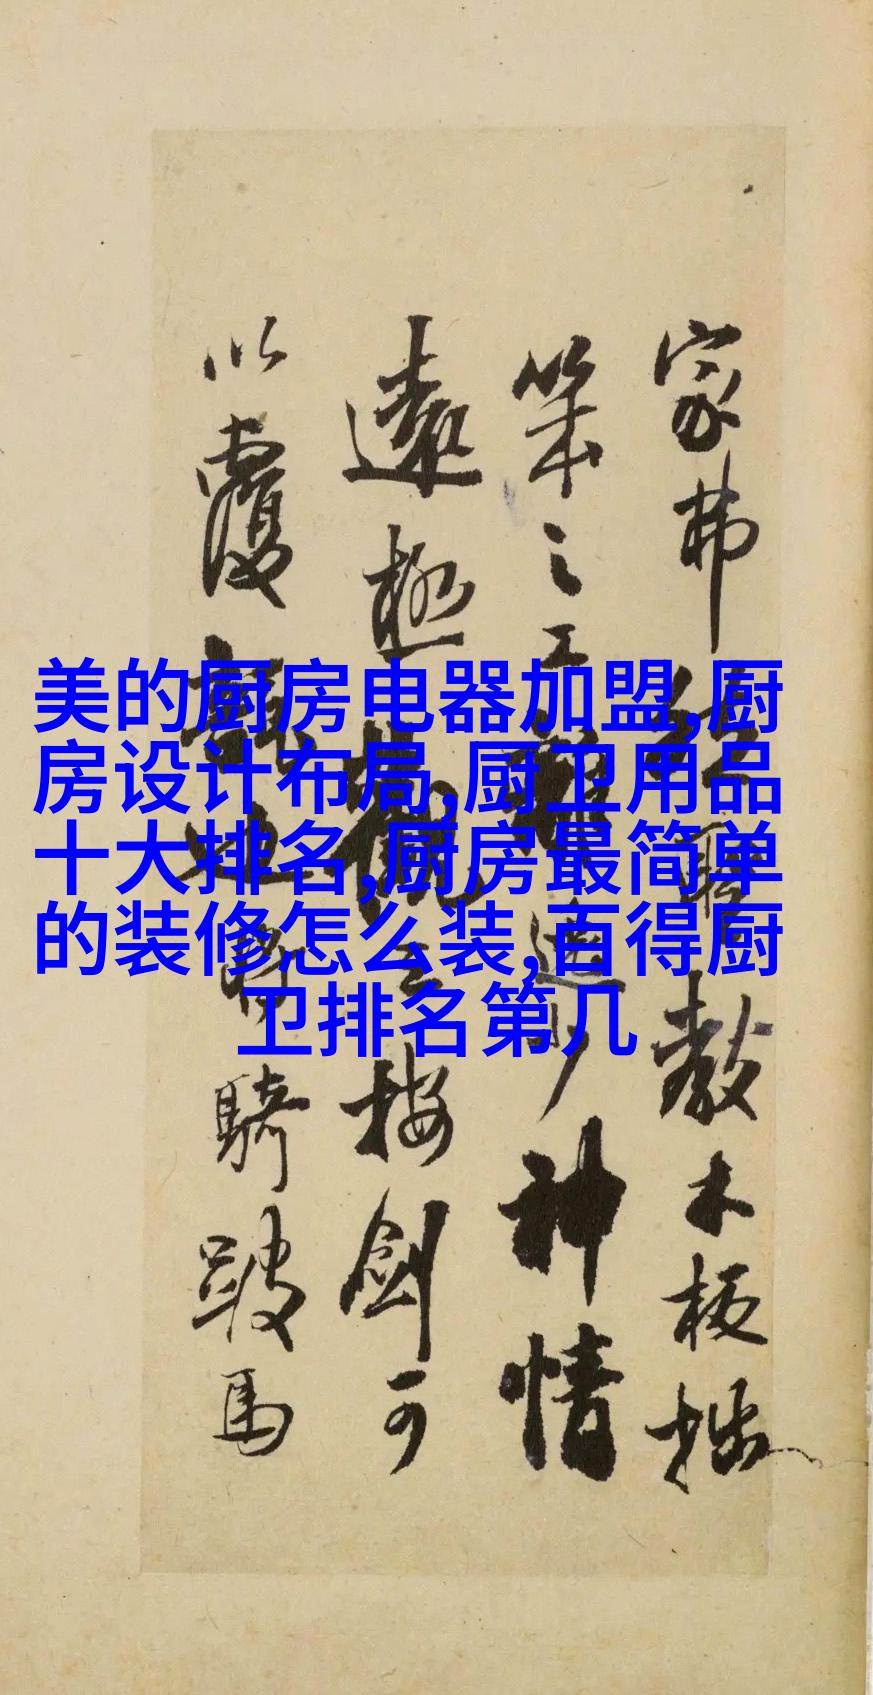 美的厨房电器加盟,厨
房设计布局,厨卫用品
十大排名,厨房最简单
的装修怎么装,百得厨
卫排名第几
家弗
教木板拙
筆之工
神情
遠極
按剑可
以覆
騎跛馬